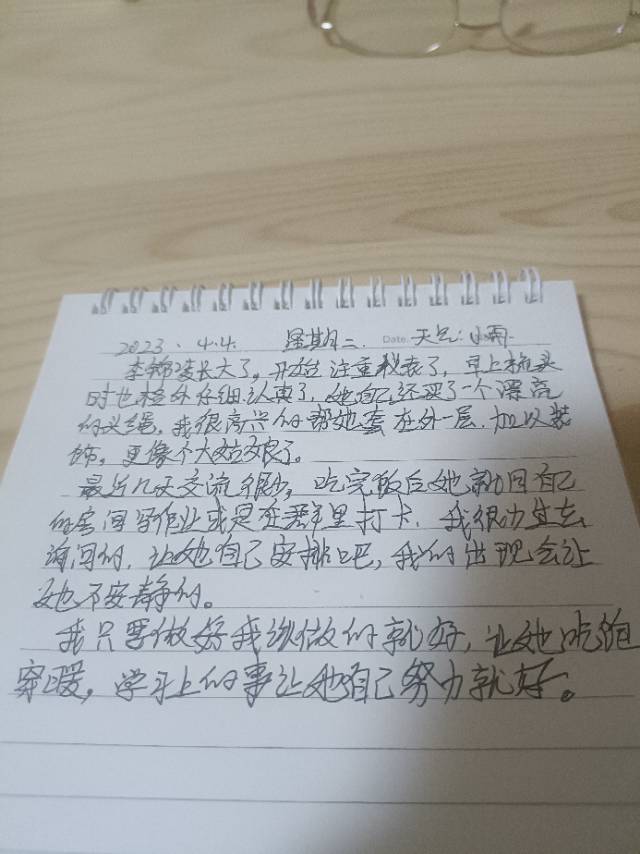 2023.4.4. 星期二 Date. 天气:小雨.
李锦凌长大了。开始注重仪表了,早上梳头
时也格外仔细认真了,她自己还买了一个漂亮
的头绳,我很高兴的帮她套在外一层.加以装
饰,更像个大姑娘了。
最近几天交流很少,吃完饭后她就回自己
的房间写作业或是在群里打卡.我很少过去
询问的,让她自己安排吧,我的出现会让
她不安静的。
我只要做好我该做的就好,让她吃饱
穿暖,学习上的事让她自己努力就好。